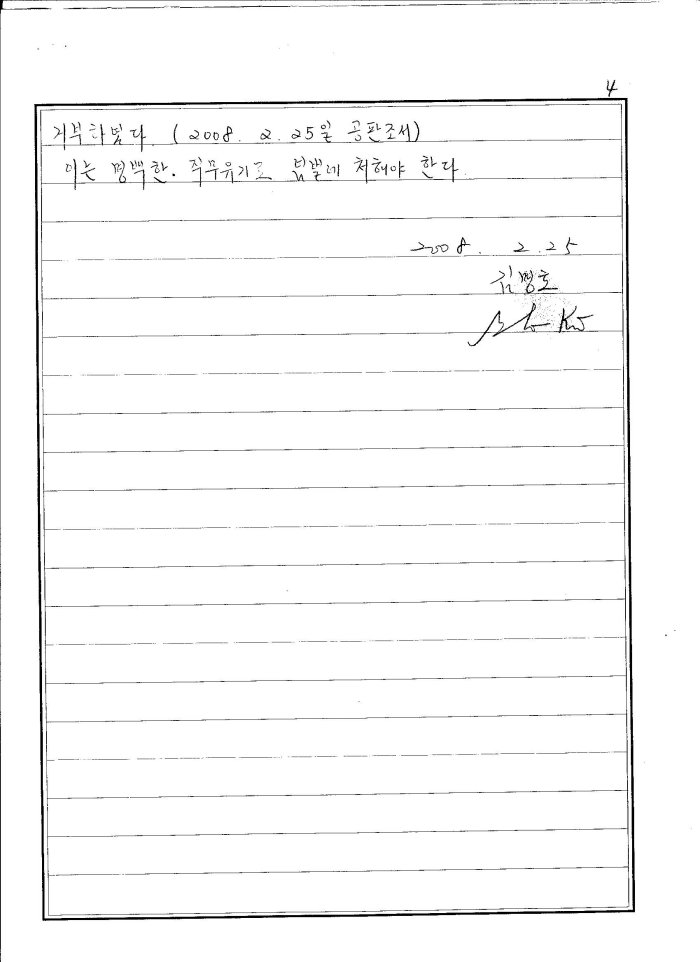 4
거부하였다. (2008. 2. 25일 공판조서)
이는 명백한. 직무유기로 엄벌에 처해야 한다
2008. 2. 25
김명호